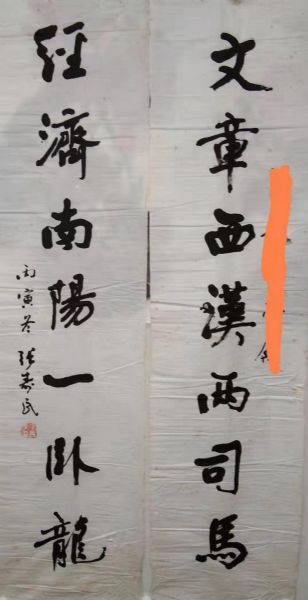 文章西漢兩司馬
經濟南陽一卧龍
丙寅冬 張壽民